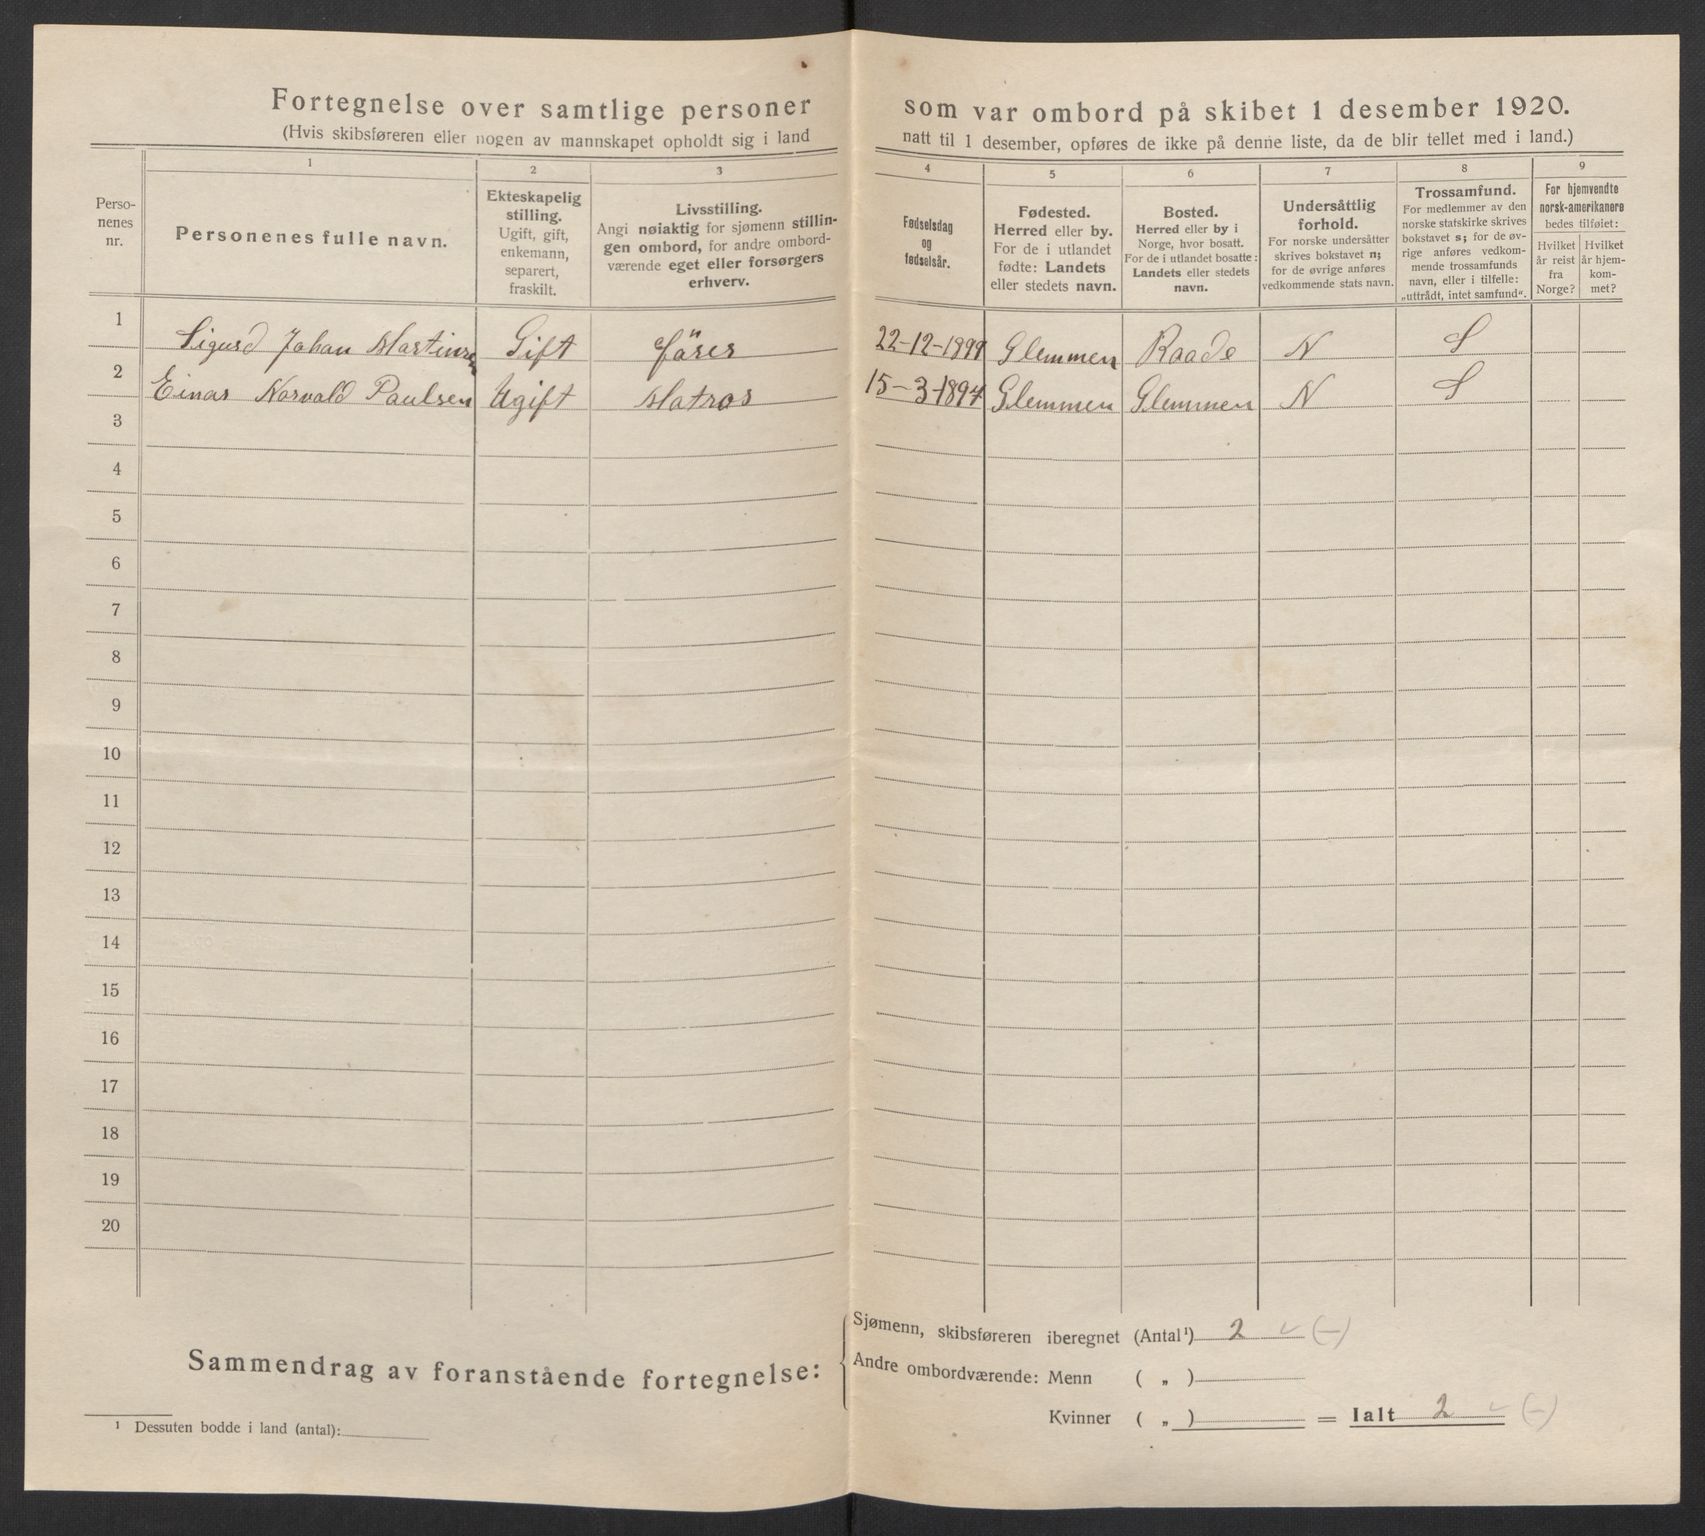 Fortegnelse over samtlige personer som var ombord på skibet 1 desember 1920.
(Hvis skibsføreren eller nogen av mannskapet opholdt sig i land natt til 1 desember, opføres de ikke på denne liste, da de blir tellet med i land.)
Perso-
nenes
nr.
1
Personenes fulle navn.
2
Ekteskapelig
stilling.
Ugift, gift,
enkemann,
separert,
fraskilt.
3
Livsstilling.
Angi nøiaktig for sjømenn stillin-
gen ombord, for andre ombord-
værende eget eller forsørgers
erhverv.
4
Fødselsdag
og
fødselsår.
5
Fødested.
Herred eller by.
For de i utlandet
fødte: Landets
eller stedets navn.
6
Bosted.
Herred eller by i
Norge, hvor bosatt.
For de i utlandet bosatte:
Landets eller stedets
navn.
7
Undersåttlig
forhold.
For norske undersåtter
skrives bokstavet n;
for de øvrige anføres
vedkommende stats navn.
8
Trossamfund.
For medlemmer av den
norske statskirke skrives
bokstavet s; for de øv-
rige anføres vedkom-
mende trossamfunds
navn, eller i tilfelle:
„uttrådt, intet samfund“.
9
For hjemvendte
norsk-amerikanere
bedes tilføiet:
Hvilket
år reist
fra
Norge?
Hvilket
år hjem-
kom-
met?
1 Sigurd Johan Martinsen Gift förer 22-12-1899 Glemmen Raade N S
2 Einar Norvald Paulsen Ugift Matros 15-3-1894 Glemmen Glemmen N S
3
4
5
6
7
8
9
10
11
12
13
14
15
16
17
18
19
20
Sammendrag av foranstående fortegnelse:
Sjømenn, skibsføreren iberegnet (Antal¹) 2 (-)
Andre ombordværende: Menn ( „ )
Kvinner ( „ ) = Ialt 2 (-)
¹ Dessuten bodde i land (antal):